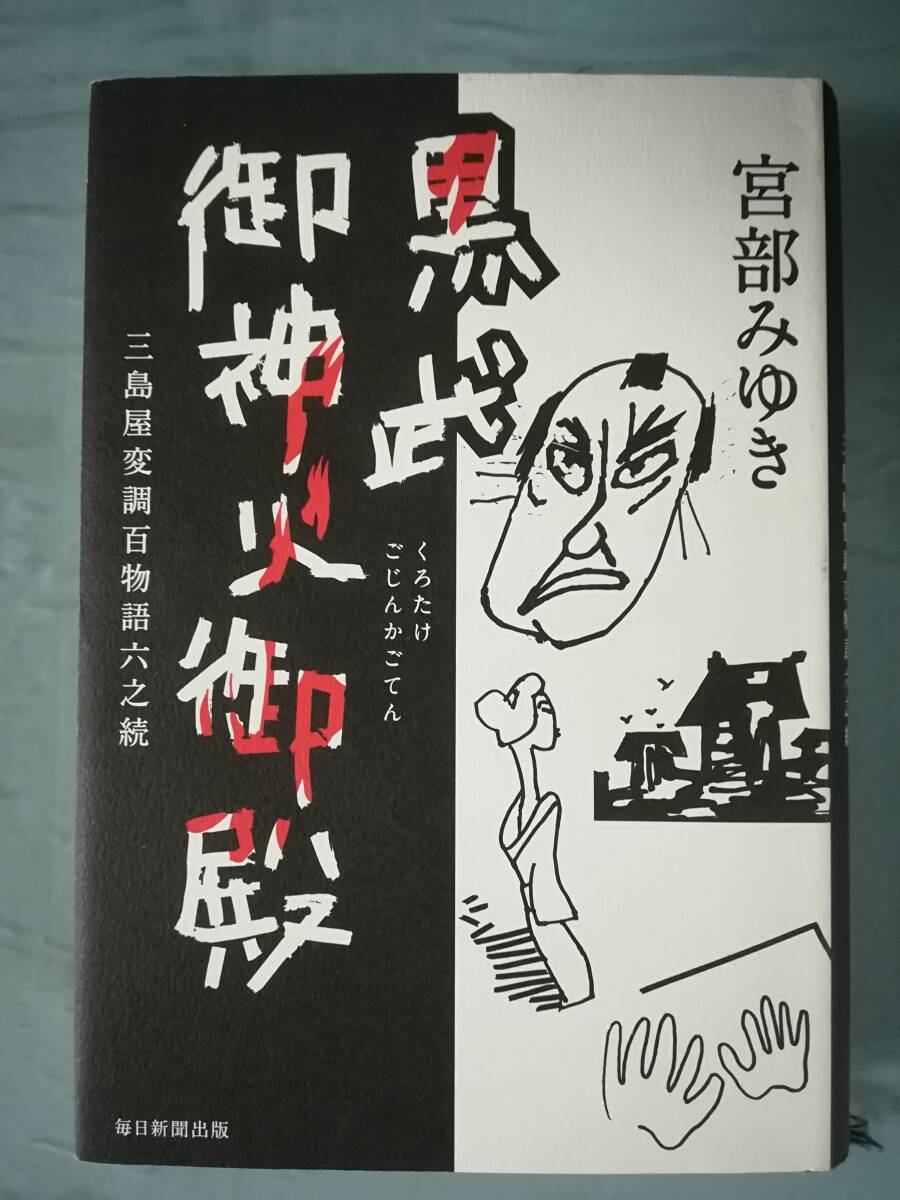 宮部みゆき
黒武
御神火御殿
くろたけ
ごじんかごてん
三島屋変調百物語六之続
毎日新聞出版